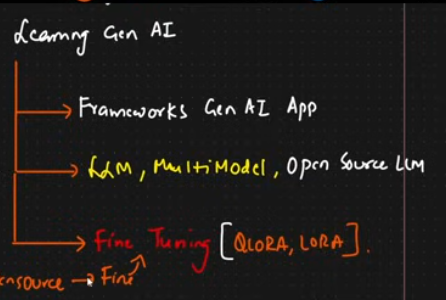 Learning Gen AI
Frameworks Gen AI App
LLM, MultiModel, Open Source LLM
Fine Tuning [QLORA, LORA].
ensource → Fine